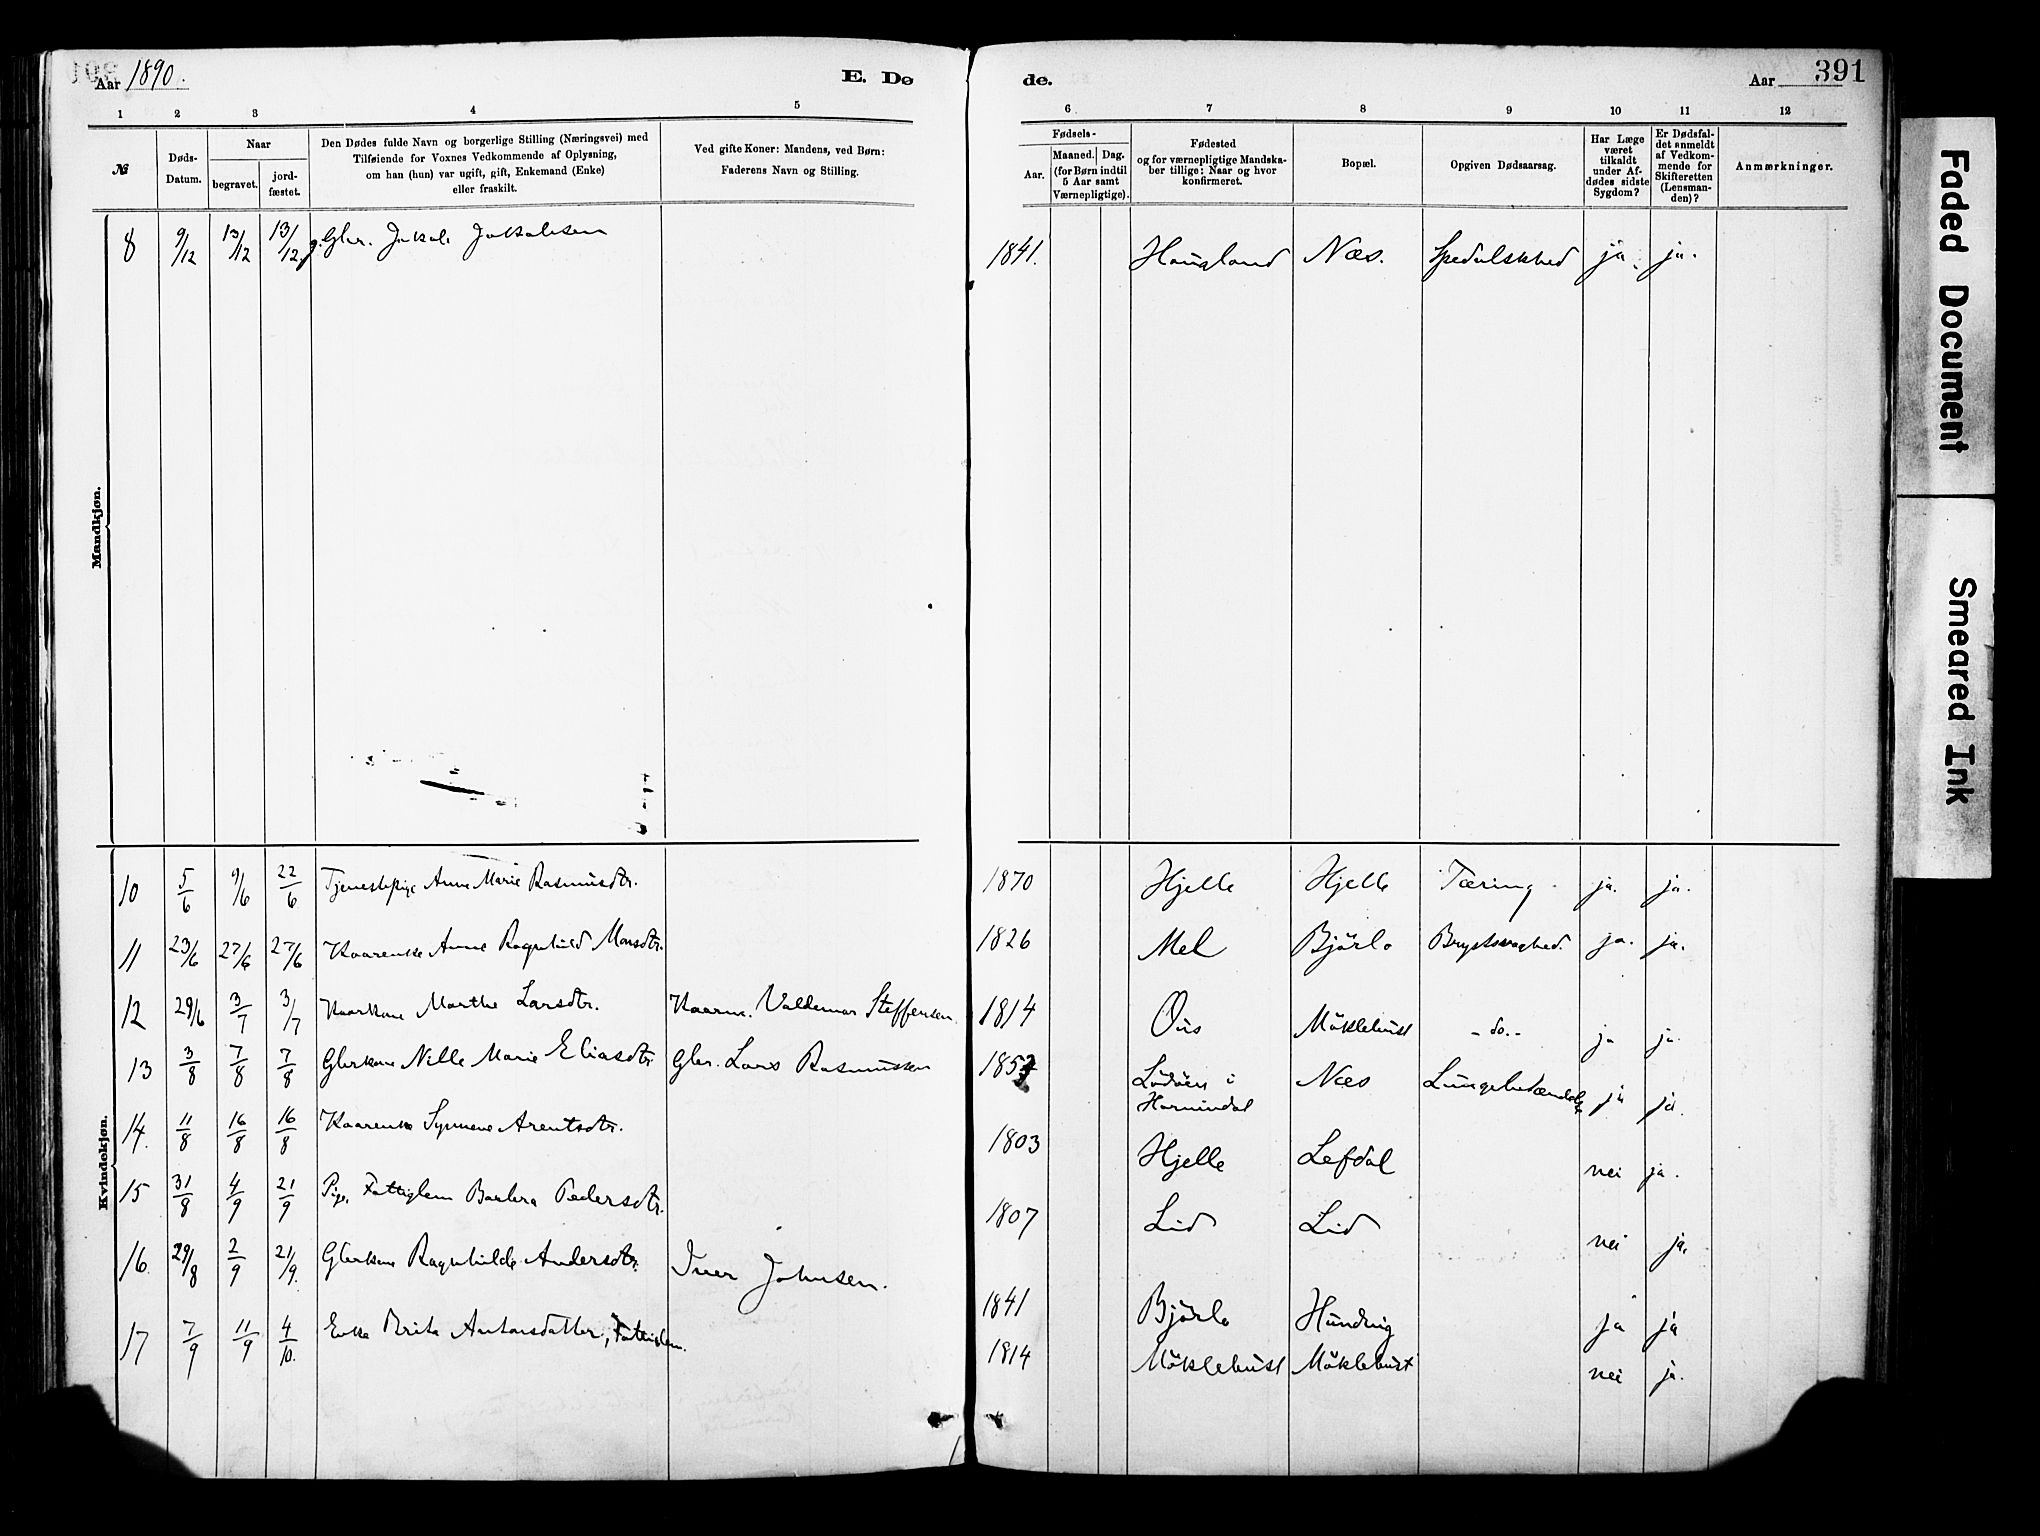 Aar 1890.
E. Dø
de.
Aar
391
1 2 3 4 5 6 7 8 9 10 11 12
№
Døds-
Datum.
Naar
begravet.
jord-
fæstet.
Den Dødes fulde Navn og borgerlige Stilling (Næringsvei) med
Tilføiende for Voxnes Vedkommende af Oplysning,
om han (hun) var ugift, gift, Enkemand (Enke)
eller fraskilt.
Ved gifte Koner: Mandens, ved Børn:
Faderens Navn og Stilling.
Fødsels-
Aar.
Maaned. Dag.
(for Børn indtil
5 Aar samt
Værnepligtige).
Fødested
og for værnepligtige Mandska-
ber tillige: Naar og hvor
konfirmeret.
Bopæl.
Opgiven Dødsaarsag.
Har Læge
været
tilkaldt
under Af-
dødes sidste
Sygdom?
Er Dødsfal-
det anmeldt
af Vedkom-
mende for
Skifteretten
(Lensman-
den)?
Anmærkninger.
Mandkjøn.
8 9/12 13/12 13/12 g. Gbr. Jakob Jakobsen 1841. Haugland Næs. Spedalskhed ja. ja.
Kvindekjøn.
10 5/6 9/6 22/6 Tjenestepige Anne Marie Rasmusdtr. 1870 Hjelle Hjelle Tæring. ja. ja.
11 23/6 27/6 27/6 Kaarenke Anne Ragnhild Monsdtr. 1826 Mel Bjørlo Brystsvaghed. ja. ja.
12 29/6 3/7 3/7 Kaarkone Marthe Larsdtr. Kaarm. Valdemar Steffensen. 1814 Øus Møklebust - do. - ja ja.
13 3/8 7/8 7/8 Gbrkone Nille Marie Eliasdtr. Gbr. Lars Rasmussen Lødøen i Næs Lungebetændelse ja ja.
Hornindal
14. 11/8 16/8 16/8 Kaarenke Synneve Arentsdtr. 1803 Hjelle Lefdal nei ja.
15 31/8 4/9 21/9 Pige, Fattiglem Barbra Pedersdtr. 1807 Lid Lid nei ja.
16. 29/8 2/9 21/9. Gbrkone Ragnhilde Andersdtr. Iver Johnsen. 1841 Bjørlo Hundvig ja ja
17 7/9 11/9 4/10. Enke Brita Antonsdatter, Fattiglem. 1814 Møklebust Møklebust nei ja.
Faded Document
Smeared Ink